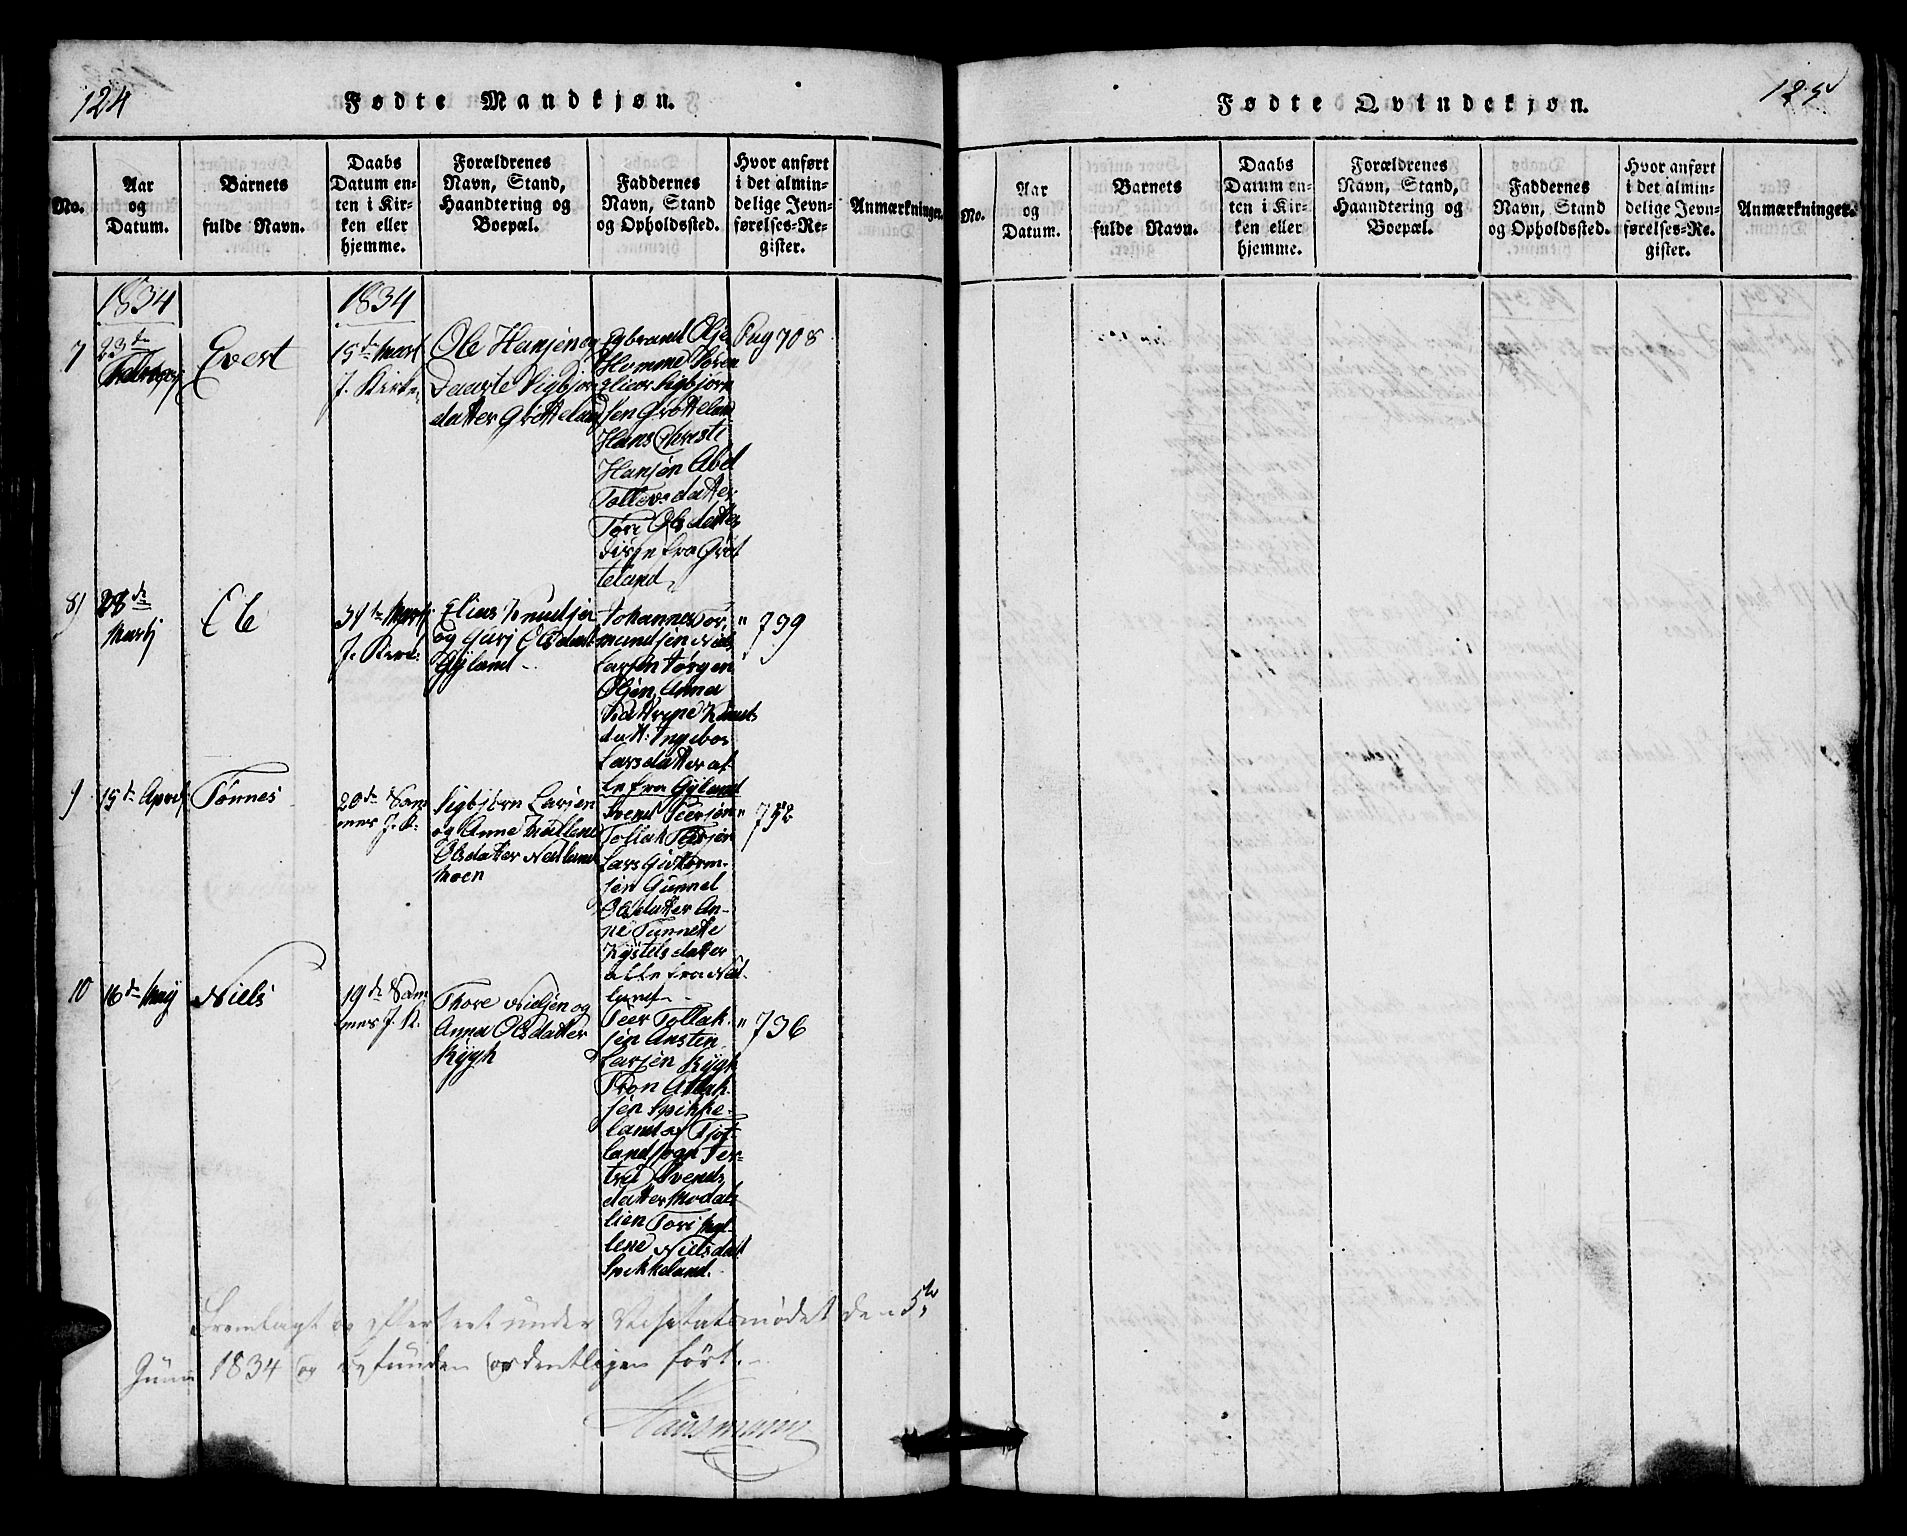 124
Fødte Mandkjøn.
No.
Aar
og
Datum.
Barnets
fulde Navn.
Daabs
Datum en-
ten i Kir-
ken eller
hjemme.
Forældrenes
Navn, Stand,
Haandtering og
Boepæl.
Faddernes
Navn, Stand
og Opholdssted.
Hvor anført
i det almin-
delige Jevn-
førelses-Re-
gister.
Anmærkninger.
1834
1834
7
23de
Februarj
Evert
15de Mart
J. Kirk
Ole Hansen og
Daarte Sigbjørns
datter Grøtteland
Egbrand Olse
Homme Søren
Elias Sigbjørn
sen Grøtteland
Hans Christi
Hansen Abel
Tollevsdatter
Tori Olsdatter
disse fra Grøt
teland
Pag 708
8)
28de
Martj
Ole
31te Martj
J. Kirk:
Elias Knudsen
og Gurj Olsdatt
Gyland
Johannes Tor
mundsen Niels
Larsen Jørgen
Olsen, Anna
Kattrine Knuds
datt: Ingebor
Larsdatter al
le fra Gyland
" 739
9
15de April
Tønnes
20de Sam
mes J. K:
Sigbjørn Larsen
og Anne Mallene
Olsdatter Nedland
Moen
Svend Peersøn
Tollak Peersøn
Lars Guttorm-
sen Gunnel
Olsdatter An-
ne Tonnette
Kystelsdatter
alle fra Ned
land
" 752
10
16de Maij
Niels
19de Sam
mes J. K.
Thore Nielsen og
Anna Olsdatter
Rygh
Peer Tollak
sen Ansten
Larsen Rygh
Tron Asslak
sen Spikke-
land af Fjot-
landsogn Ser-
tru Svends
datter Modal
lien Tori Mal-
lene Nielsdatt
Spikkeland.
" 736
Fremlagt og efterseet under Visitatsmødet den 5te
Junii 1834 og befunden ordentligen ført.
Hausmann
125
Fødte Qvindekjøn.
No.
Aar
og
Datum.
Barnets
fulde Navn.
Daabs
Datum en-
ten i Kir-
ken eller
hjemme.
Forældrenes
Navn, Stand,
Haandtering og
Boepæl.
Faddernes
Navn, Stand
og Opholdssted.
Hvor anført
i det almin-
delige Jevn-
førelses-Re-
gister.
Anmærkninger.